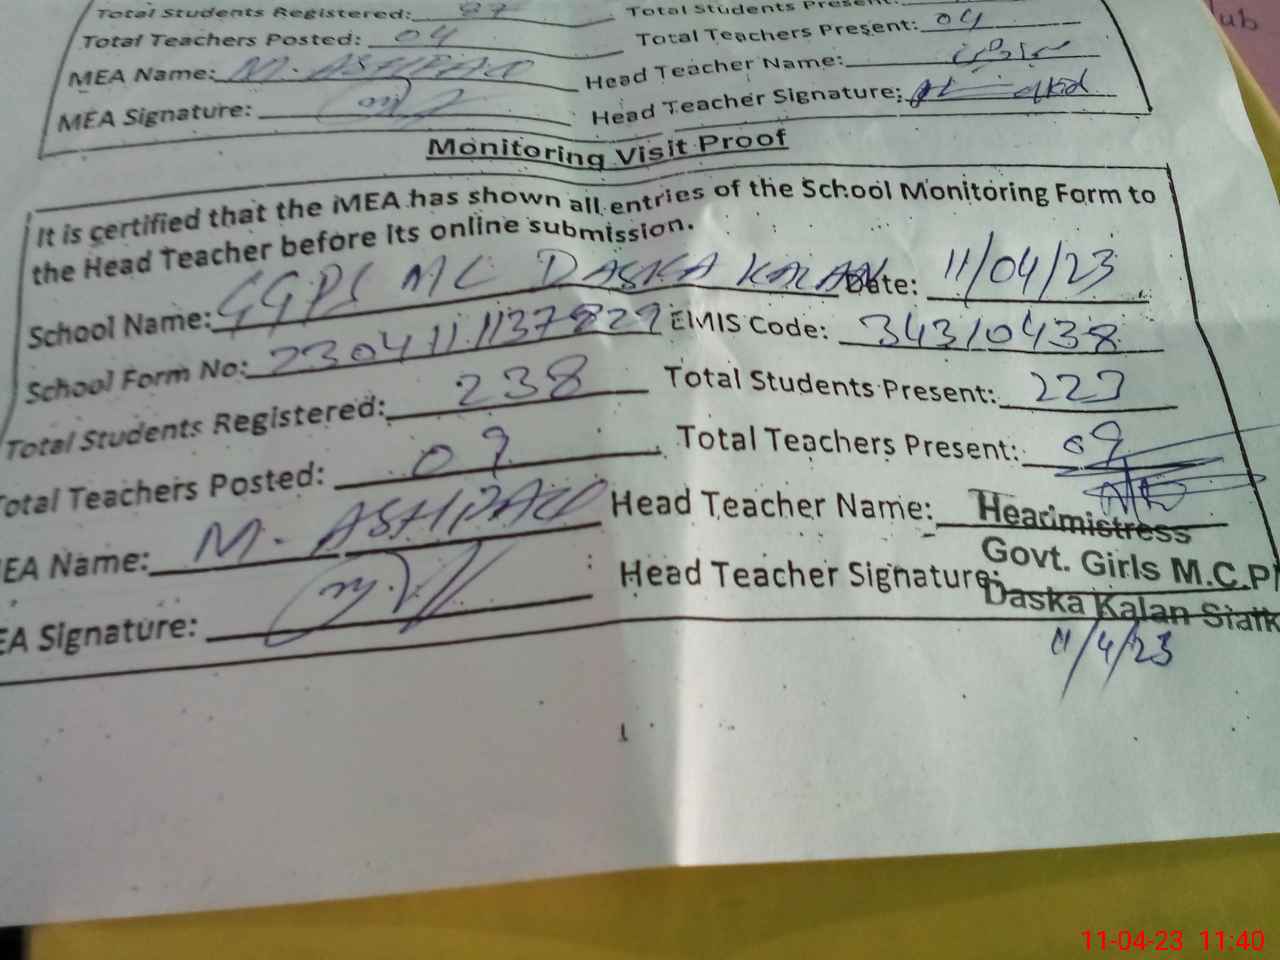 Total Students Registered: 87 Total Students Present:
Total Teachers Posted: 04 Total Teachers Present: 04
MEA Name: M. ASHFAQ Head Teacher Name:
MEA Signature: Head Teacher Signature:
Monitoring Visit Proof
It is certified that the MEA has shown all entries of the School Monitoring Form to
the Head Teacher before its online submission.
School Name: GGPS MC DASKA KALAN Date: 11/04/23
School Form No: 230411.1137829 EMIS Code: 34310438
Total Students Registered: 238 Total Students Present: 223
Total Teachers Posted: 09 Total Teachers Present: 09
EA Name: M. ASHFAQ Head Teacher Name: Headmistress
Govt. Girls M.C.P
EA Signature: Head Teacher Signature: Daska Kalan Sialk
11/4/23
11-04-23 11:40